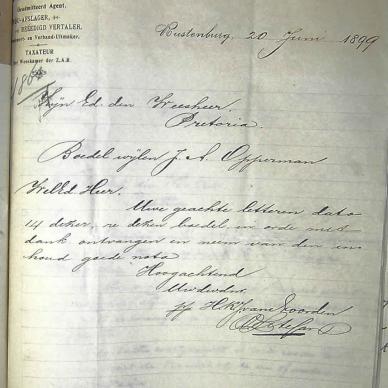 Geadmitteerd Agent,
AFSLAGER,
BEEEDIGD VERTALER,
en Verband-Uitmaker,
TAXATEUR
Weeskamer der Z.A.R.
Rustenburg, 20 Juni 1899
Zijn Ed. den Weesheer
Pretoria.
Boedel wijlen J. A. Opperman
WelEd Heer.
Uwe geachte letteren dato
14 dezer, re dezen boedel, in orde met
dank ontvangen en neem van den in-
houd goede nota
Hoogachtend
Uwdwdnr.
pp H. K. J. van Noorden